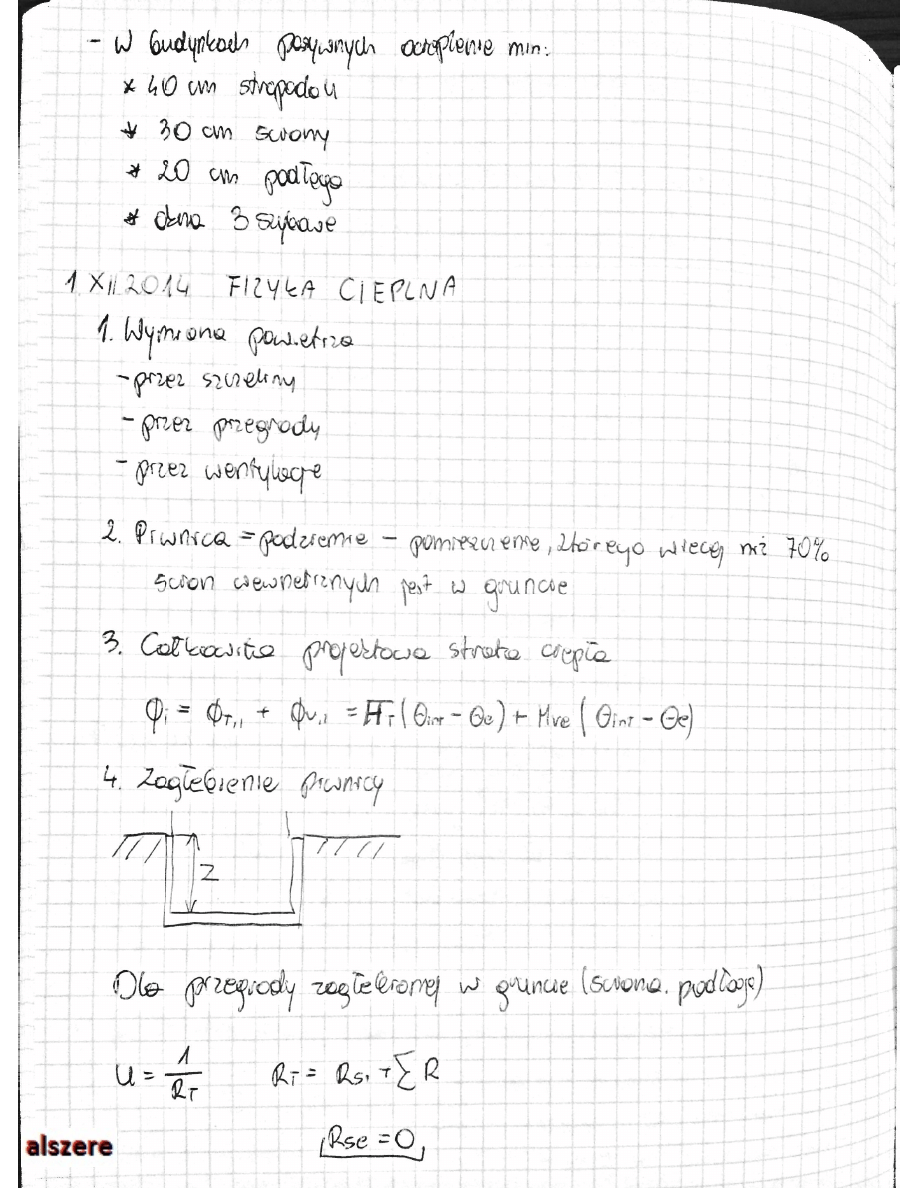 - W budynkach pasywnych ocieplenie min:
* 40 cm stropodach
* 30 cm ściany
* 20 cm podłoga
* okna 3 szybowe
1 XII 2014 FIZYKA CIEPLNA
1. Wymiana powietrza
- przez szczeliny
- przez przegrody
- przez wentylację
2. Piwnica = podziemie - pomieszczenie, którego więcej niż 70%
ścian zewnętrznych jest w gruncie
3. Całkowita projektowa strata ciepła
Φi = ΦT,i + ΦV,i = HT (θint - θe) + Hve (θint - θe)
4. Zagłębienie piwnicy
Z
Dla przegrody zagłębionej w gruncie (ściana, podłoga)
U = 1/RT RT = Rsi + ∑ R
Rse = 0
alszere